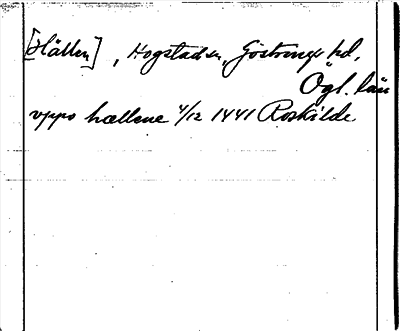 [Hällen], Hogstad sn, Göstrings hd,
Ögl. län
vppo hællene 4/12 1441 Roskilde